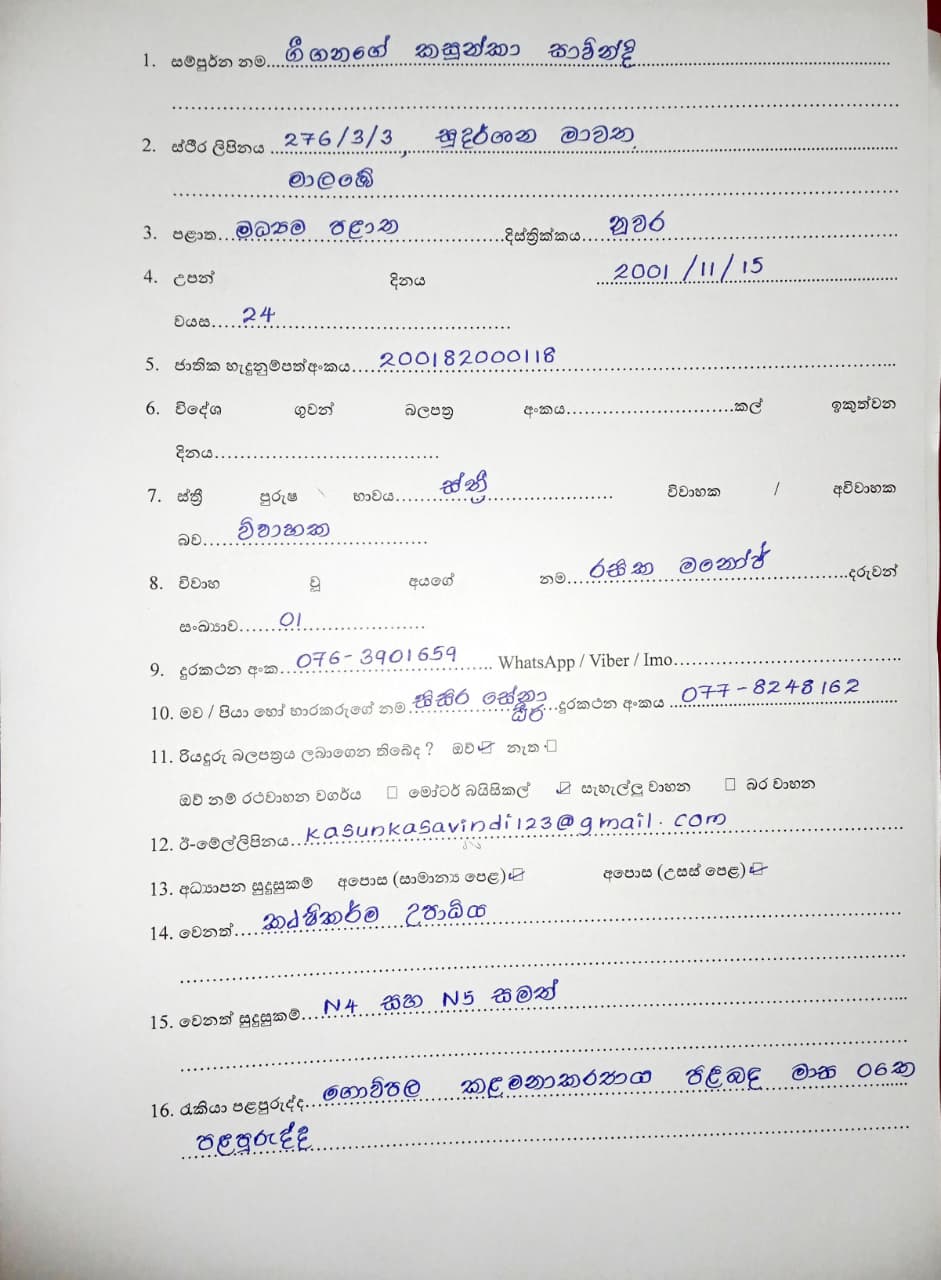 1. සම්පුර්න නම....ගීගනගේ කසුන්කා සාවින්දි
2. ස්ථීර ලිපිනය ...276/3/3, සුදර්ශන මාවත
මාලඹේ
3. පළාත...මධ්‍යම පළාත.....දිස්ත්‍රික්කය... නුවර
4. උපන් දිනය ...2001/11/15
වයස.... 24
5. ජාතික හැඳුනුම්පත්අංකය....200182000118
6. විදේශ ගුවන් බලපත්‍ර අංකය............කල් ඉකුත්වන
දිනය............
7. ස්ත්‍රී පුරුෂ භාවය.....ස්ත්‍රී..... විවාහක / අවිවාහක
බව.....විවාහක
8. විවාහ වූ අයගේ නම....රසික මනෝජ්.....දරුවන්
සංඛ්‍යාව......01
9. දුරකථන අංක...076-3901659..... WhatsApp / Viber / Imo............
10. මව / පියා හෝ භාරකරුගේ නම සිසිර සේනා
ධීර ...දුරකථන අංකය ...077-8248162
11. රියදුරු බලපත්‍රය ලබාගෙන තිබේද ? ඔව් ☑ නැත ☐
ඔව් නම් රථවාහන වගර්ය ☐ මෝටර් බයිසිකල් ☑ සැහැල්ලු වාහන ☐ බර වාහන
12. ඊ-මේල්ලිපිනය...kasunkasavindi123@gmail.com
13. අධ්‍යාපන සුදුසුකම් අපොස (සාමාන්‍ය පෙළ) ☑ අපොස (උසස් පෙළ) ☑
14. වෙනත්.....කෘෂිකර්ම උපාධිය
15. වෙනත් සුදුසුකම්....N4 සහ N5 සමත්
16. රැකියා පළපුරුද්ද...ගොවිපල කළමනාකරනය පිළිබඳ මාස 06ක
පළපුරුද්දි